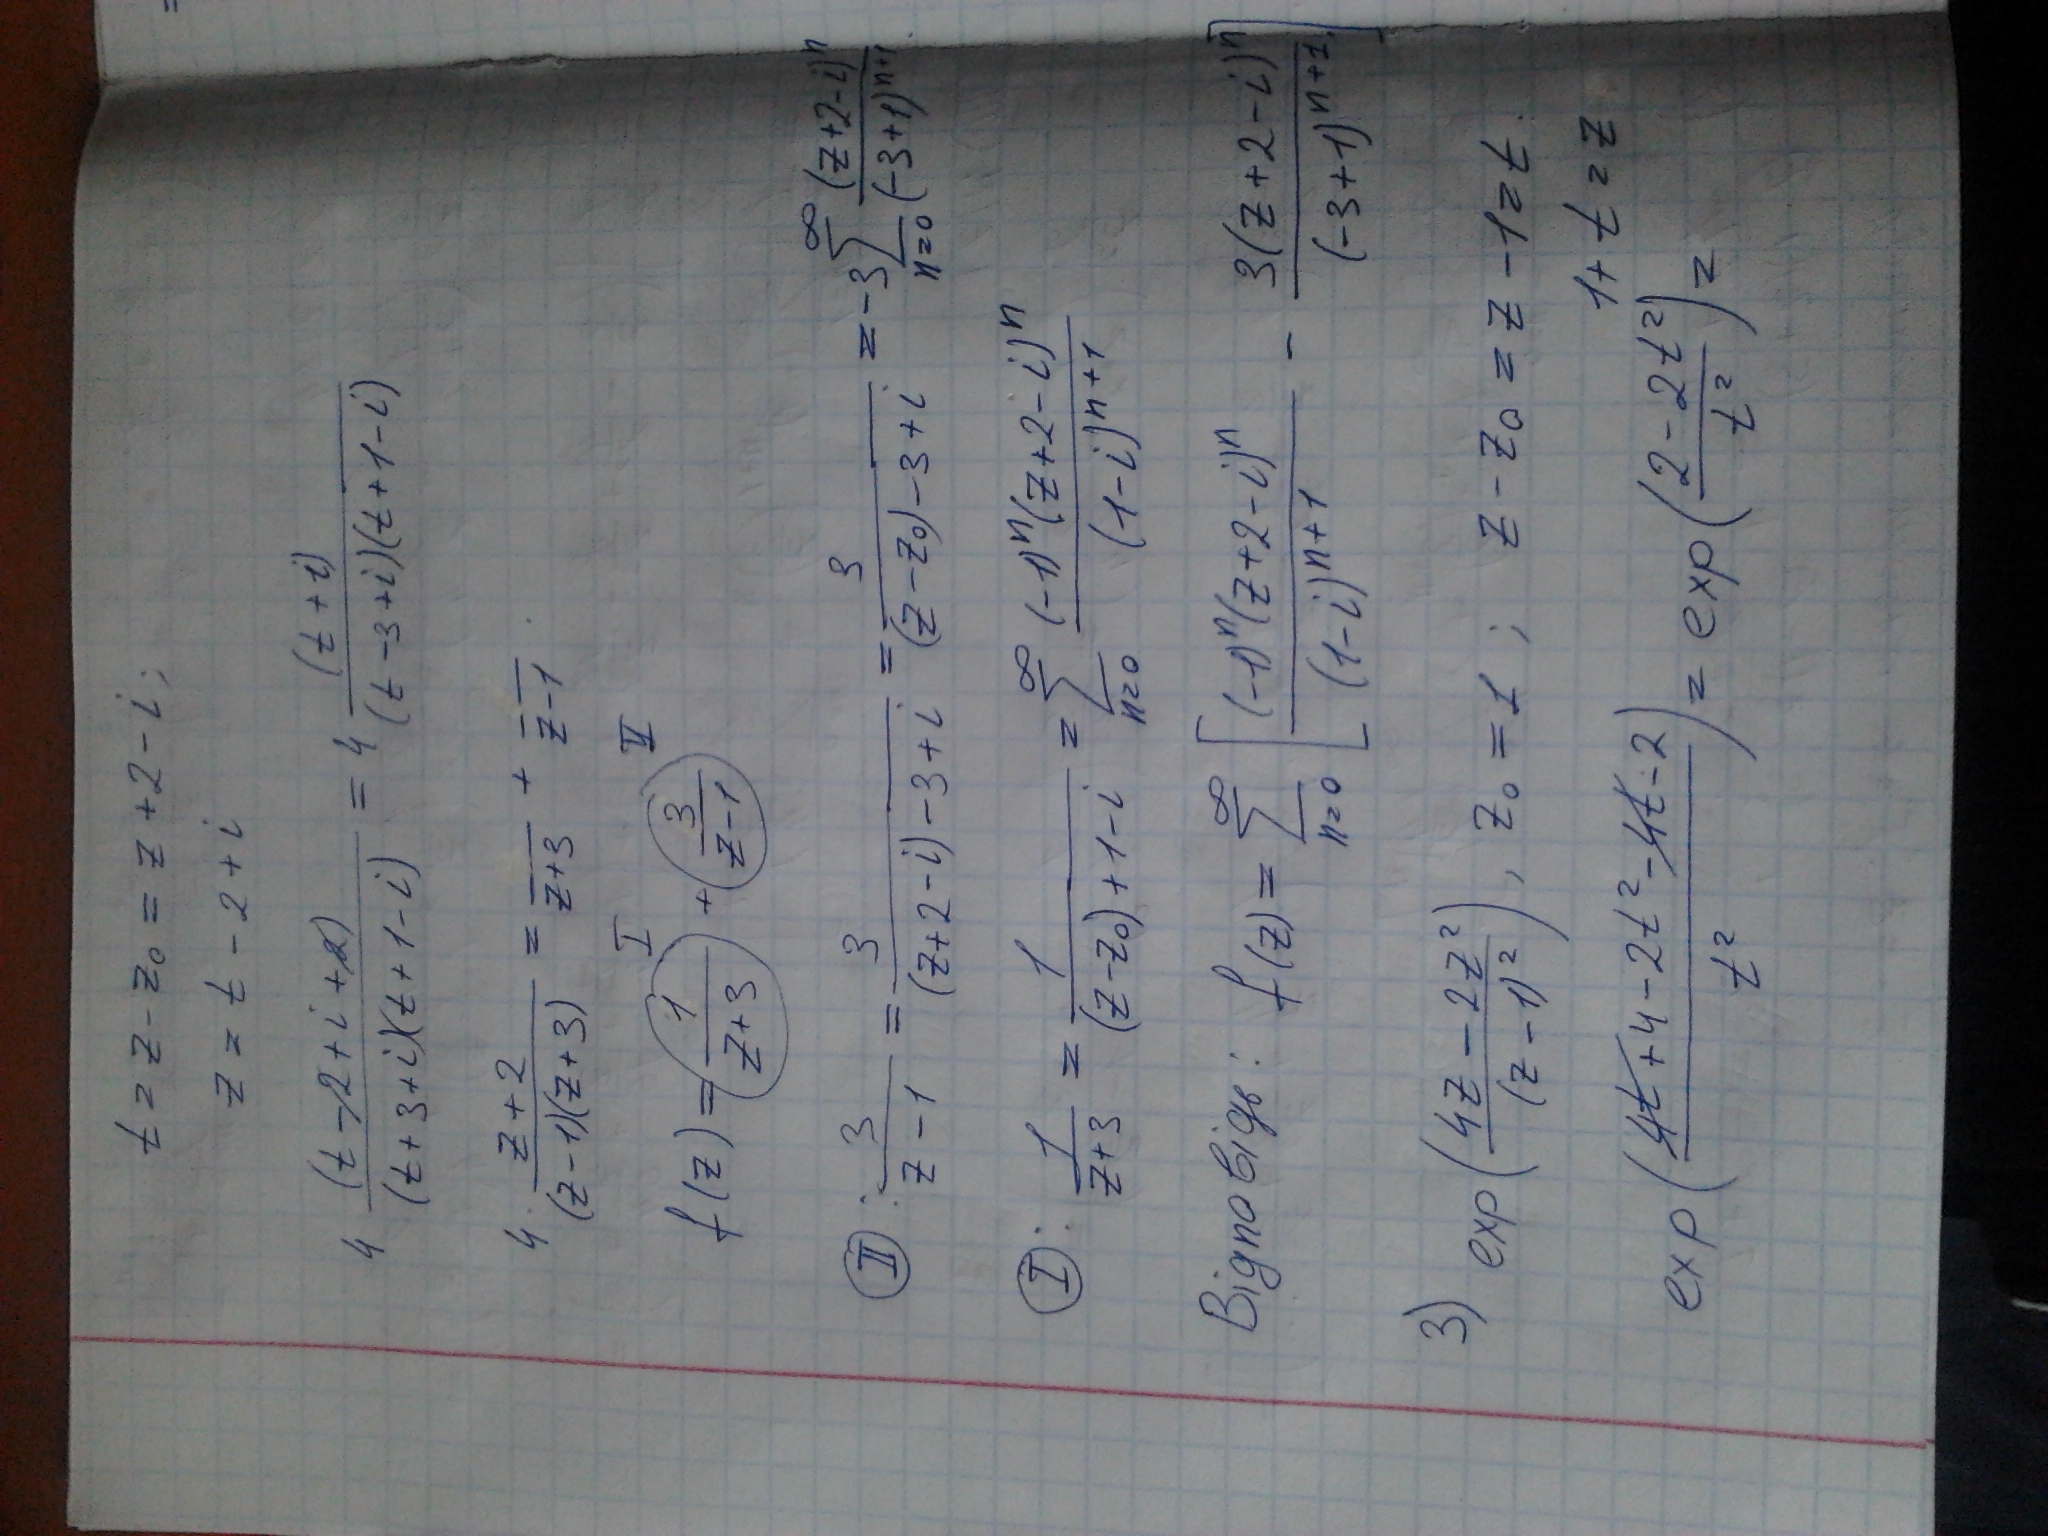 t = z - z₀ = z + 2 - i;
z = t - 2 + i
4 (t - 2 + i + 2) / (t + 3 + i)(t + 1 - i) = 4 (t + i) / (t - 3 + i)(t + 1 - i)
4 · z + 2 / (z - 1)(z + 3) = — / z + 3 + — / z - 1 .
I II
f(z) = 1 / z + 3 + 3 / z - 1
II : 3 / z - 1 = 3 / (z + 2 - i) - 3 + i = 3 / (z - z₀) - 3 + i = -3 ∑ n=0 ∞ (z + 2 - i)ⁿ / (-3 + 1)ⁿ⁺¹
I : 1 / z + 3 = 1 / (z - z₀) + 1 - i = ∑ n=0 ∞ (-1)ⁿ (z + 2 - i)ⁿ / (1 - i)ⁿ⁺¹
Відповідь: f(z) = ∑ n=0 ∞ [ (-1)ⁿ (z + 2 - i)ⁿ / (1 - i)ⁿ⁺¹ - 3 (z + 2 - i)ⁿ / (-3 + 1)ⁿ⁺¹ ]
3) exp( 4z - 2z² / (z - 1)² ), z₀ = 1 ; z - z₀ = z - 1 = t .
1 + t = z
exp( 4t + 4 - 2t² - 4t - 2 / t² ) = exp( 2 - 2t² / t² ) =